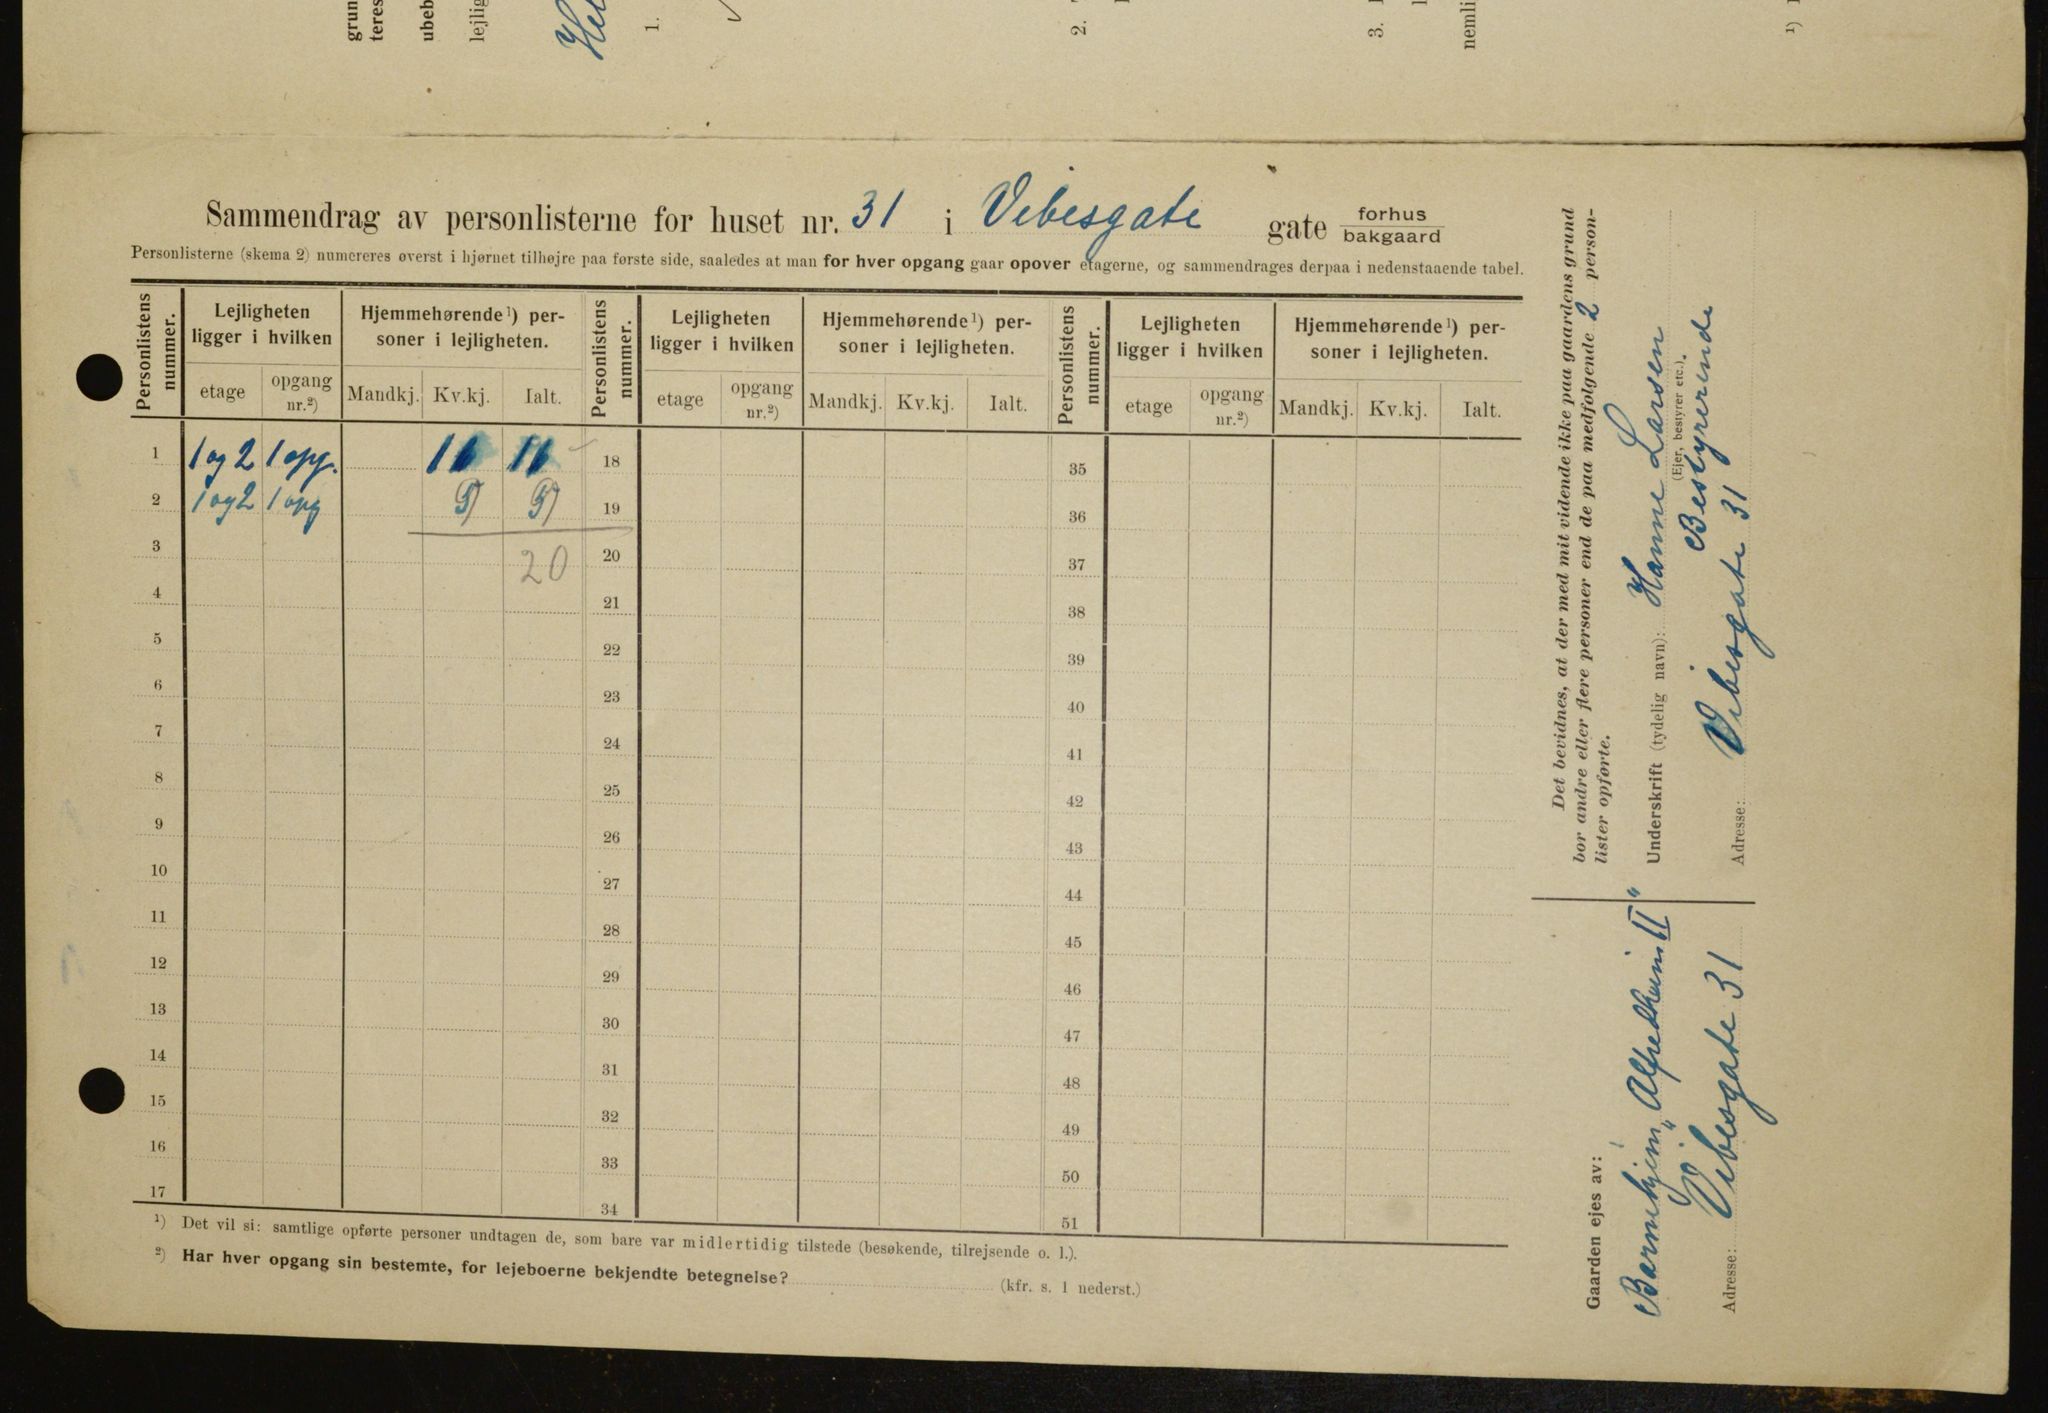 grun
teres
ubeb
lejlig
1.
2.
3.
nemli
¹)
Sammendrag av personlisterne for huset nr. 31 i Vibesgate gate forhus
bakgaard
Personlisterne (skema 2) numereres øverst i hjørnet tilhøjre paa første side, saaledes at man for hver opgang gaar opover etagerne, og sammendrages derpaa i nedenstaaende tabel.
Personlistens nummer. Lejligheten ligger i hvilken Hjemmehørende ¹) personer i lejligheten. Personlistens nummer. Lejligheten ligger i hvilken Hjemmehørende ¹) personer i lejligheten. Personlistens nummer. Lejligheten ligger i hvilken Hjemmehørende ¹) personer i lejligheten.
etage opgang nr.²) Mandkj. Kv.kj. Ialt. etage opgang nr.²) Mandkj. Kv.kj. Ialt. etage opgang nr.²) Mandkj. Kv.kj. Ialt.
1 1 og 2 1 opg. 18 35
2 1 og 2 1 opg 19 36
3 20 20 37
4 21 38
5 22 39
6 23 40
7 24 41
8 25 42
9 26 43
10 27 44
11 28 45
12 29 46
13 30 47
14 31 48
15 32 49
16 33 50
17 34 51
¹) Det vil si: samtlige opførte personer undtagen de, som bare var midlertidig tilstede (besøkende, tilrejsende o. l.).
²) Har hver opgang sin bestemte, for lejeboerne bekjendte betegnelse? (kfr. s. 1 nederst.)
Det bevidnes, at der med mit vidende ikke paa gaardens grund
bor andre eller flere personer end de paa medfølgende 2 person-
lister opførte.
Underskrift (tydelig navn): Hanne Larsen
(Ejer, bestyrer etc.).
Bestyrerinde
Adresse: Vibesgate 31
Gaarden ejes av:
Barnehjem „Alfredheim II"
Adresse: Vibesgate 31